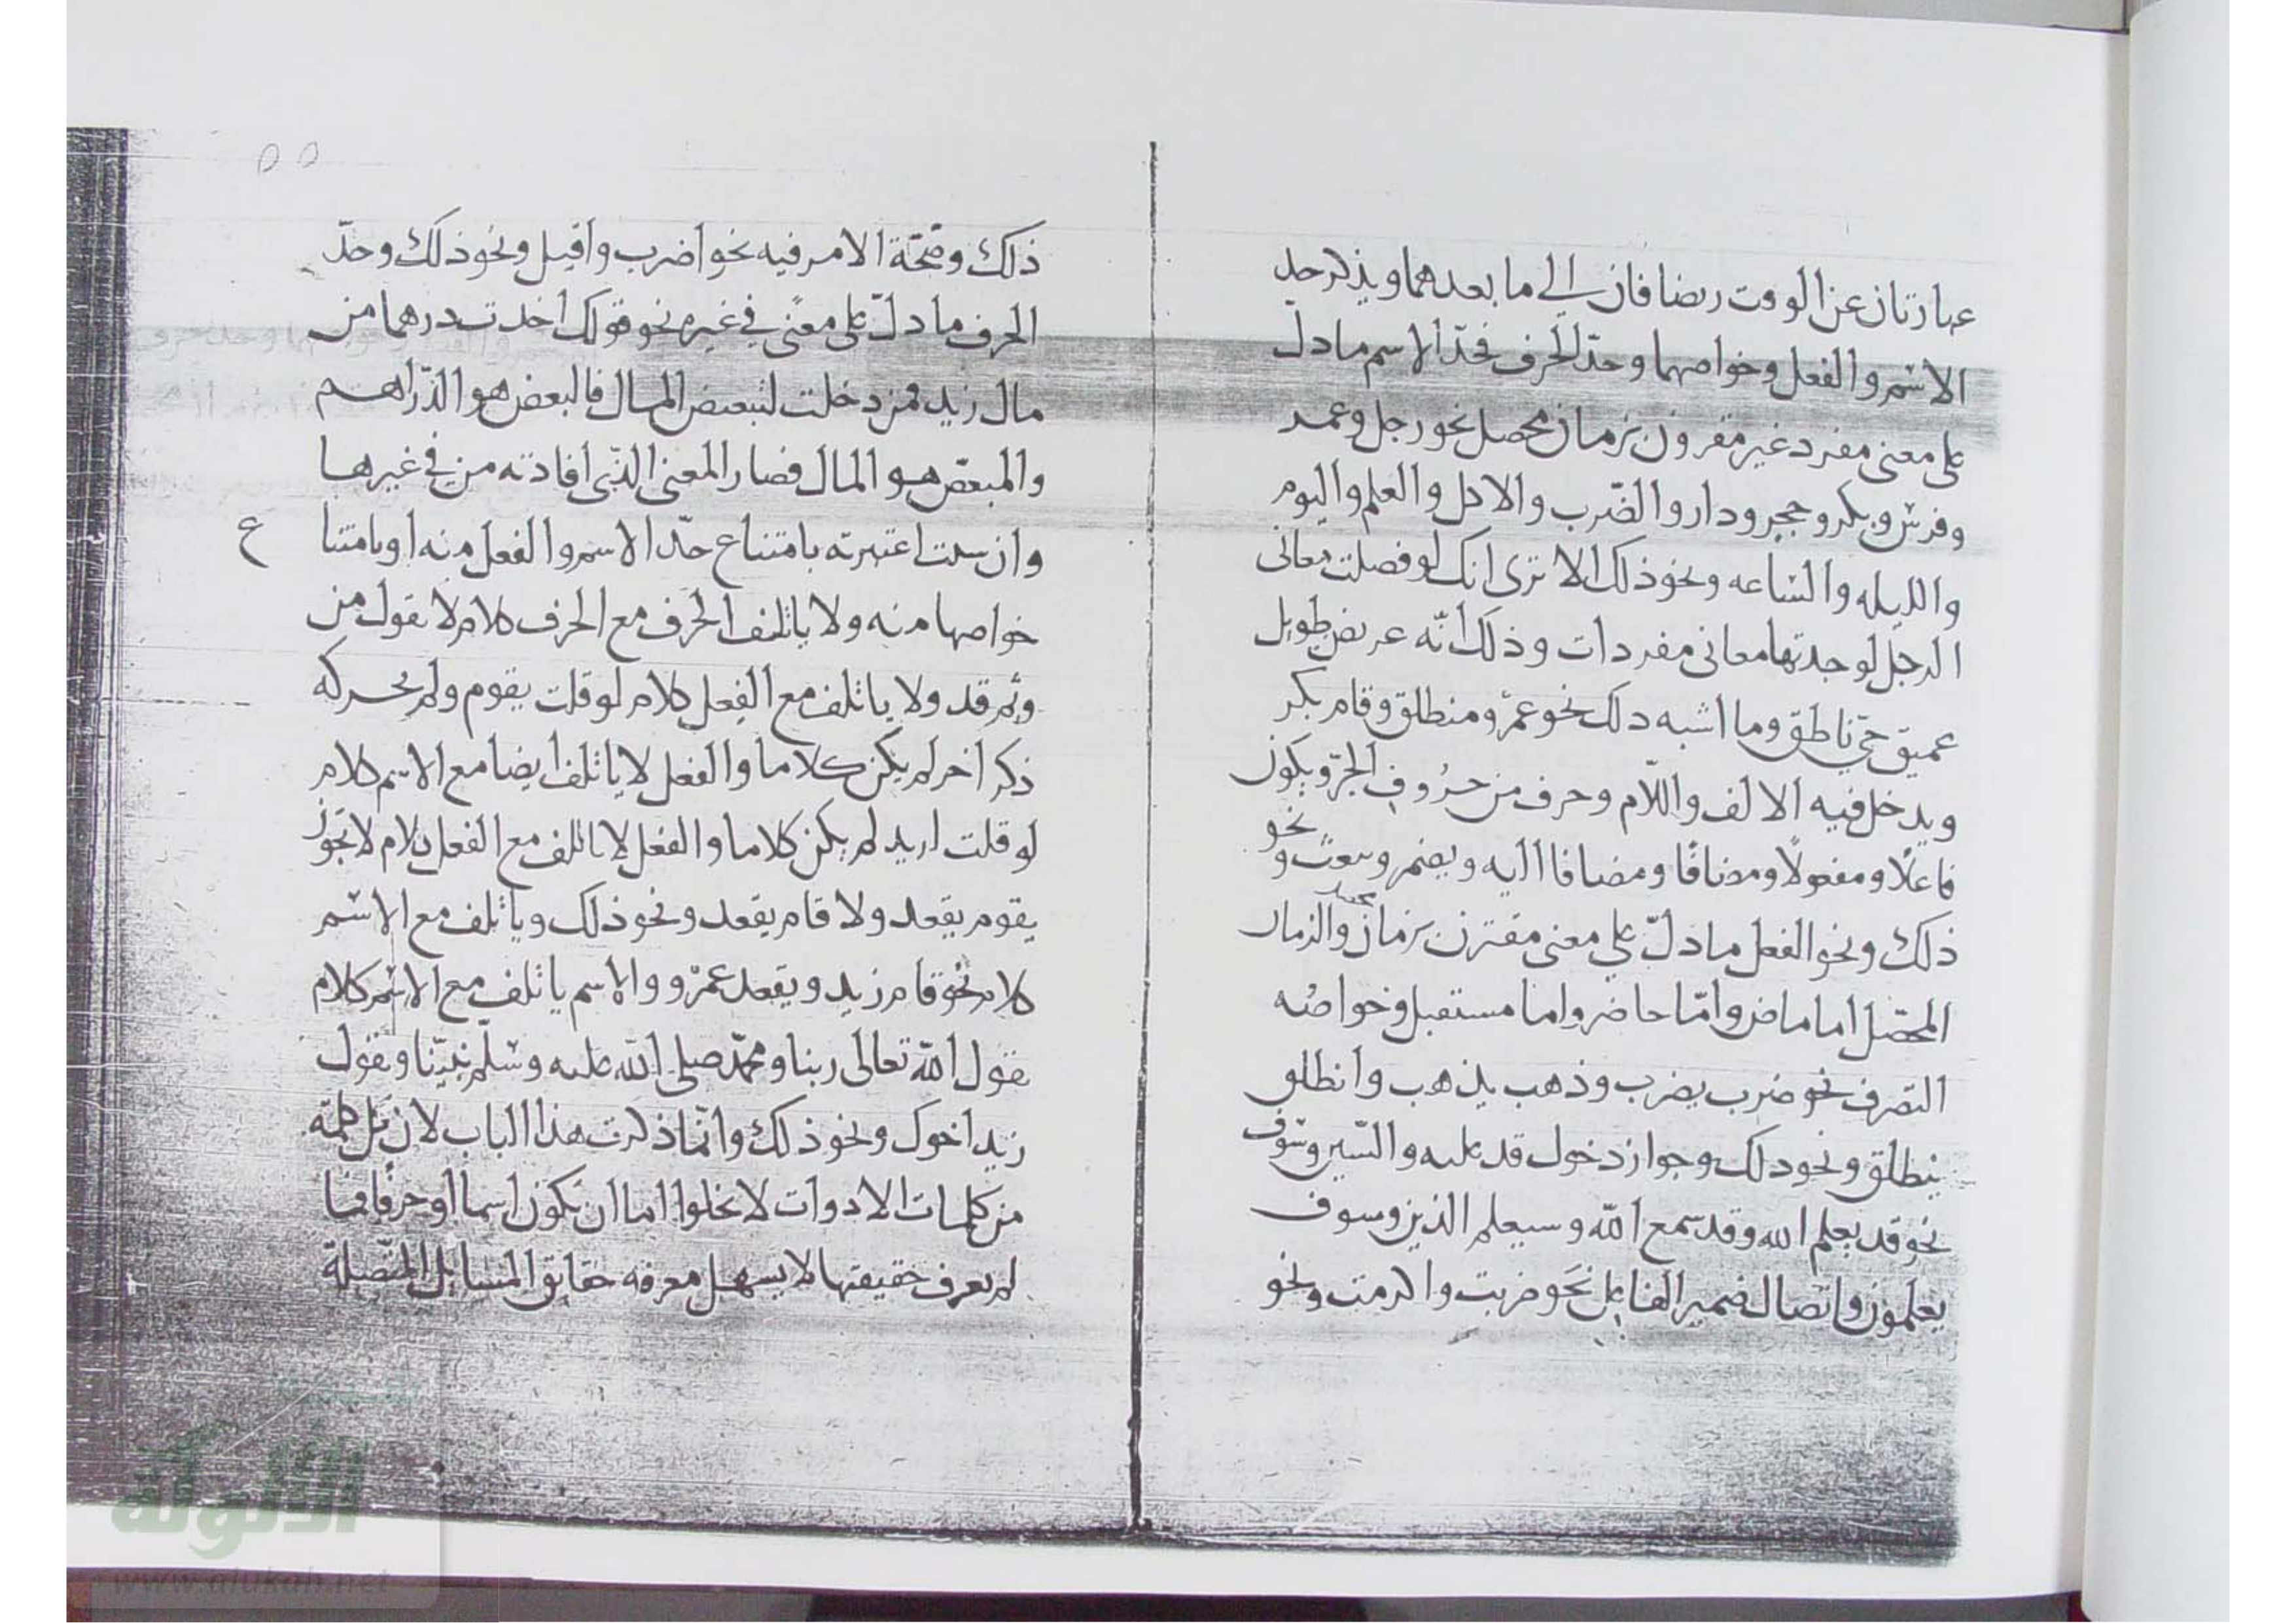 عبارتان عن الوقت يضافان الي ما بعدهما ويذكر حد
الاسم والفعل وخواصهما وحدّ الحرف فحدّ الاسم ما دل
على معنى مفرد غير مقرون بزمان محصل نحو رجل وعمد
وفرس وبكر وحجر ودار والضّرب والاكل والعلم واليوم
والليله والسّاعه ونحو ذلك الا ترى انك لو فصلت معانى
الرجل لوجدتها معانى مفردات وذلك أنّه عريض طويل
عميق حيّ ناطق وما اشبه ذلك نحو عمرٌو منطلق وقام بكر
ويدخل فيه الالف واللّام وحرف من حرُوف الجرّ ويكون
فاعلًا ومفعولًا ومضافًا ومضافا اليه ويضمر وينعت ونحو
ذلك ونحو الفعل ما دلّ علي معنى مقترن بزمان محصل والزمان
المحصّل اما ماض وامّا حاضر واما مستقبل وخواصُه
التصّرف نحو ضرب يضرب وذهب يذهب وانطلق
ينطلق ونحو ذلك وجواز دخول قد عليه والسّين وسَوف
نحو قد يعلم الله وقد سمع الله وسيعلم الذين وسوف
يعلمون واتصال ضمير الفاعل نحَو ضربت واكرمت ونحو
٥٥
ذلك وصحّة الامر فيه نحو اضرب واقبل ونحو ذلك وحدّ
الحرف ما دلّ على معنًى في غيره نحو قولك اخذت درهما من
مال زيد فمن دخلت لتبعيض المال فالبعض هو الدّراهم
والمبعّض هو المال فصار المعنى الذّى افادته من في غيرها
وان شئت اعتبرته بامتناع حدّ الاسم والفعل منه او بامتنا ع
خواصها منه ولا ياتلف الحرف مع الحرف كلام لا تقول من
وثم قد ولا ياتلف مع الفِعل كلام لو قلت يقوم ولم يجر له
ذكر اخر لم يكن كلاما والفعل لا ياتلف ايضا مع الاسم كلام
لو قلت اريد لم يكن كلاما والفعل لا ياتلف مع الفعل كلام لا تجوز
يقوم يقعد ولا قام يقعد ونحو ذلك وياتلف مع الاسم
كلام نحو قام زيد ويقعد عمرٌو والاسم ياتلف مع الاسم كلام
تقول الله تعالى ربنا ومحمّد صلى الله عليه وسَلّم نبيّنا وتقول
زيد اخوك ونحو ذلك وانّما ذكرت هذا الباب لان كل كلمة
من كلمات الادوات لا تخلوا اما ان تكون اسما او حرفا فما
لم يعرف حقيقتها لا يسهل معرفه حقايق المسايل المتّصلة
الألوكة
www.alukah.net